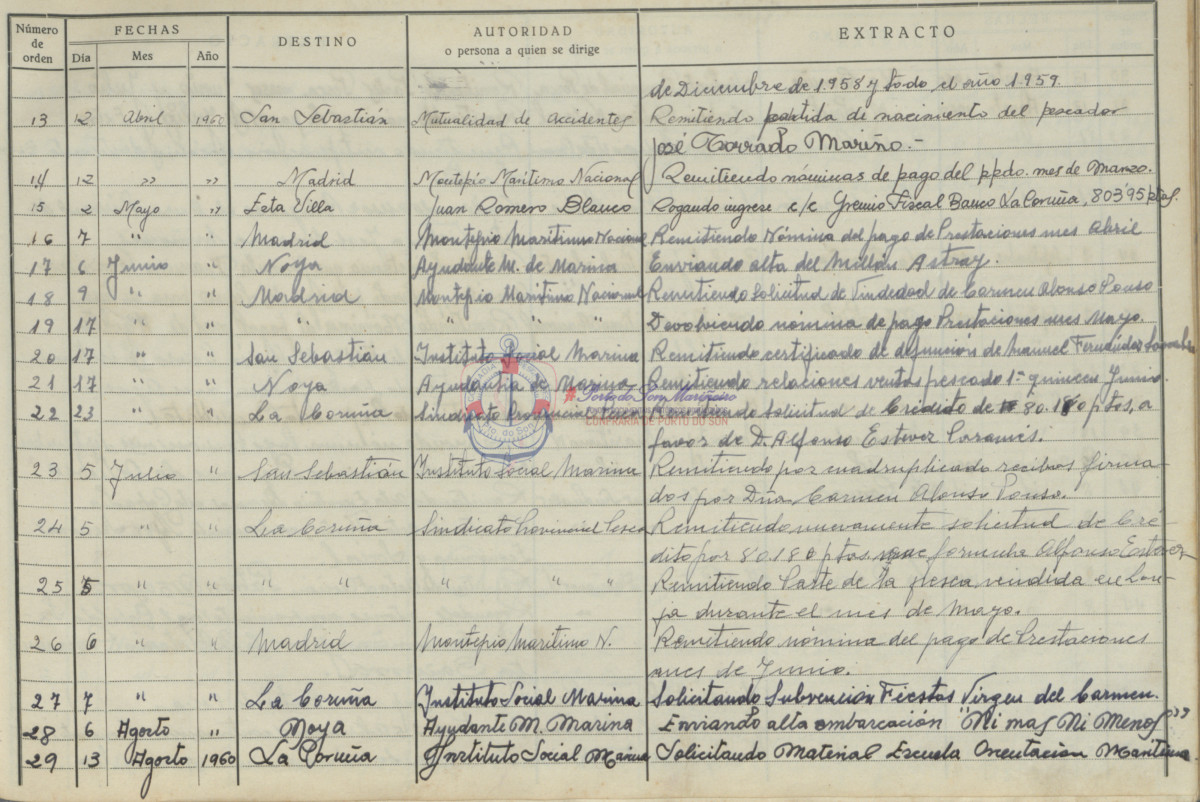 Número de orden FECHAS DESTINO AUTORIDAD o persona a quien se dirige EXTRACTO
Día Mes Año
de Diciembre de 1958 y todo el año 1959.
13 12 Abril 1960 San Sebastián Mutualidad de Accidentes Remitiendo partida de nacimiento del pescador
José Torrado Mariño.-
14 12 " " Madrid Montepío Marítimo Nacional Remitiendo nóminas de pago del ppdo. mes de Marzo.
15 2 Mayo " Esta Villa Juan Romero Blanco Rogando ingrese c/c Gremio Fiscal Banco La Coruña, 803'95 ptas.
16 7 " " Madrid Montepio Maritimo Nacional Remitiendo Nómina del pago de Prestaciones mes Abril
17 6 Junio " Noya Ayudante M. de Marina Enviando alta del Millán Astray.
18 9 " " Madrid Montepio Maritimo Nacional Remitiendo Solicitud de Viudedad de Carmen Alonso Pouso
19 17 " " " " " " Devolviendo nómina de pago Prestaciones mes Mayo.
20 17 " " San Sebastián Instituto Social Marina Remitiendo certificado de defunción de Manuel Fernández
21 17 " " Noya Ayudantia de Marina Remitiendo relaciones ventas pescado 1ª quincena Junio.
22 23 " " La Coruña Sindicato Provincial Pesca Remitiendo Solicitud de Crédito de 80.180 ptas, a
favor de D. Alfonso Estevez Caramés.
23 5 Julio " San Sebastián Instituto Social Marina Remitiendo por cuadruplicado recibos firma-
dos por Dña. Carmen Alonso Pouso.
24 5 " " La Coruña Sindicato Provincial Pesca Remitiendo nuevamente solicitud de Cré-
dito por 80.180 ptas. que formula Alfonso Estevez
25 5 " " " " " " " Remitiendo Parte de la pesca vendida en Lon-
ja durante el mes de Mayo.
26 6 " " Madrid Montepio Maritimo N. Remitiendo nómina del pago de Prestaciones
mes de Junio.
27 7 " " La Coruña Instituto Social Marina Solicitando Subvención Fiestas Virgen del Carmen.
28 6 Agosto " Noya Ayudante M. Marina Enviando alta embarcación "Ni mas Ni Menos"
29 13 Agosto 1960 La Coruña Instituto Social Marina Solicitando Material Escuela Orientación Maritima
COFRADIA DE PESCADORES
Pto. do Son
#PortodoSonMariñeiro
CONFRARIA DE PORTO DO SON